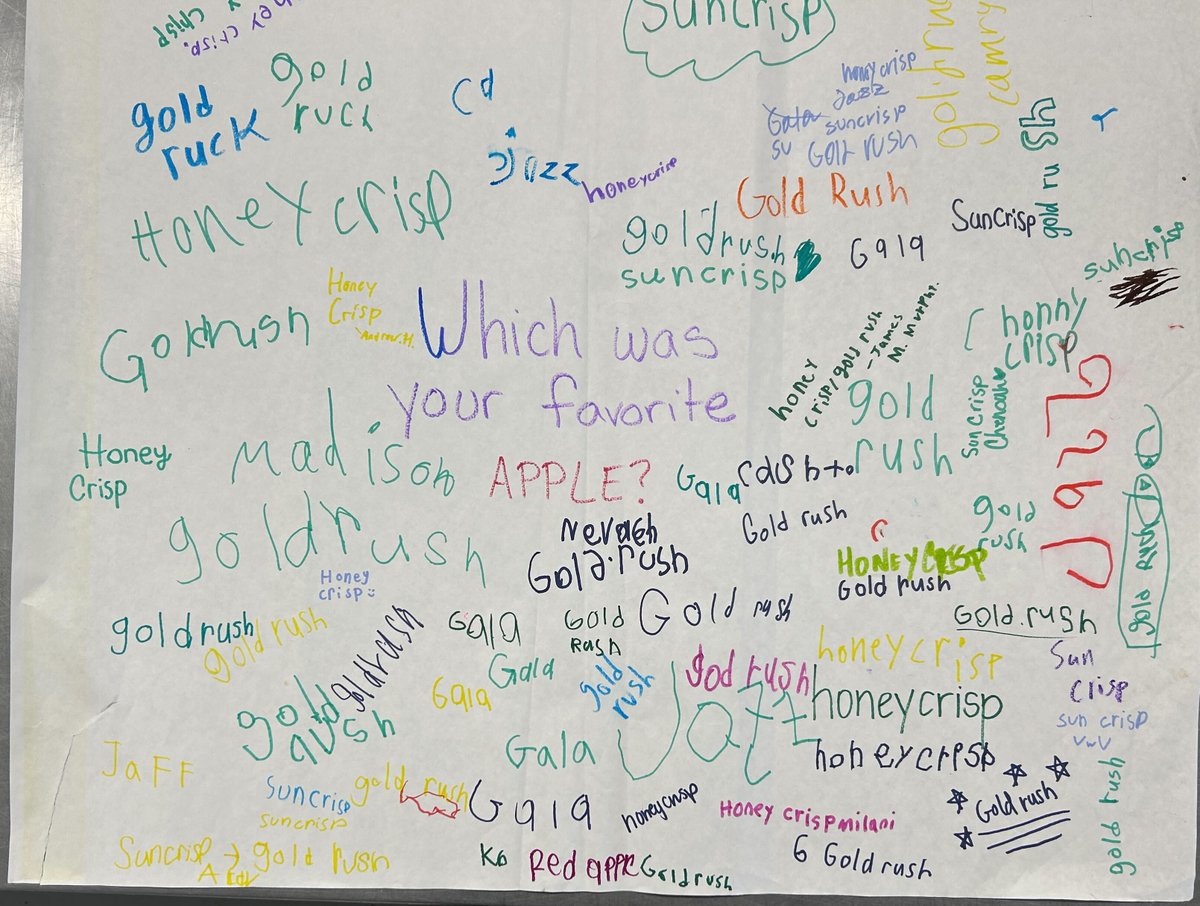 Suncrisp
ey crisp.
crisp
gold
ruck
gold
ruck
cd
jazz
honeycrisp
Honeycrisp
honeycrisp
Jazz
Gala suncrisp
su Gold rush
camry
Gold Rush
goldrush
suncrisp
Gala
Suncrisp
gold ru
suncrisp
Goldrush
Honey
Crisp
Andrew.H.
Which was
your favorite
APPLE?
honey
crisp/gold rush
-James
M. Murphy.
honny
crisp
gold
rush
Sun Crisp
Chenoah
Honey
Crisp
Madison
Gala
goldrush
Nevaeh
Gold.rush
Gold rush
gold
rush
HONEYCRISP
Gold rush
Honey
crisp
goldrush
gold rush
goldrush
Gala
Gold
Rash
Gold rush
Gold.rush
gold rush
Gala
Gala
gold
rush
god rush
honeycrisp
honeycrisp
honeycrisp
Sun
crisp
sun crisp
VwV
gold
aush
Gala
JaFF
Suncrisp
suncrisp
gold rush
Gala
honeycrisp
Honey crisp milani
Gold rush
gold rush
Suncrisp → gold rush
K6
Red apple
Goldrush
6 Gold rush